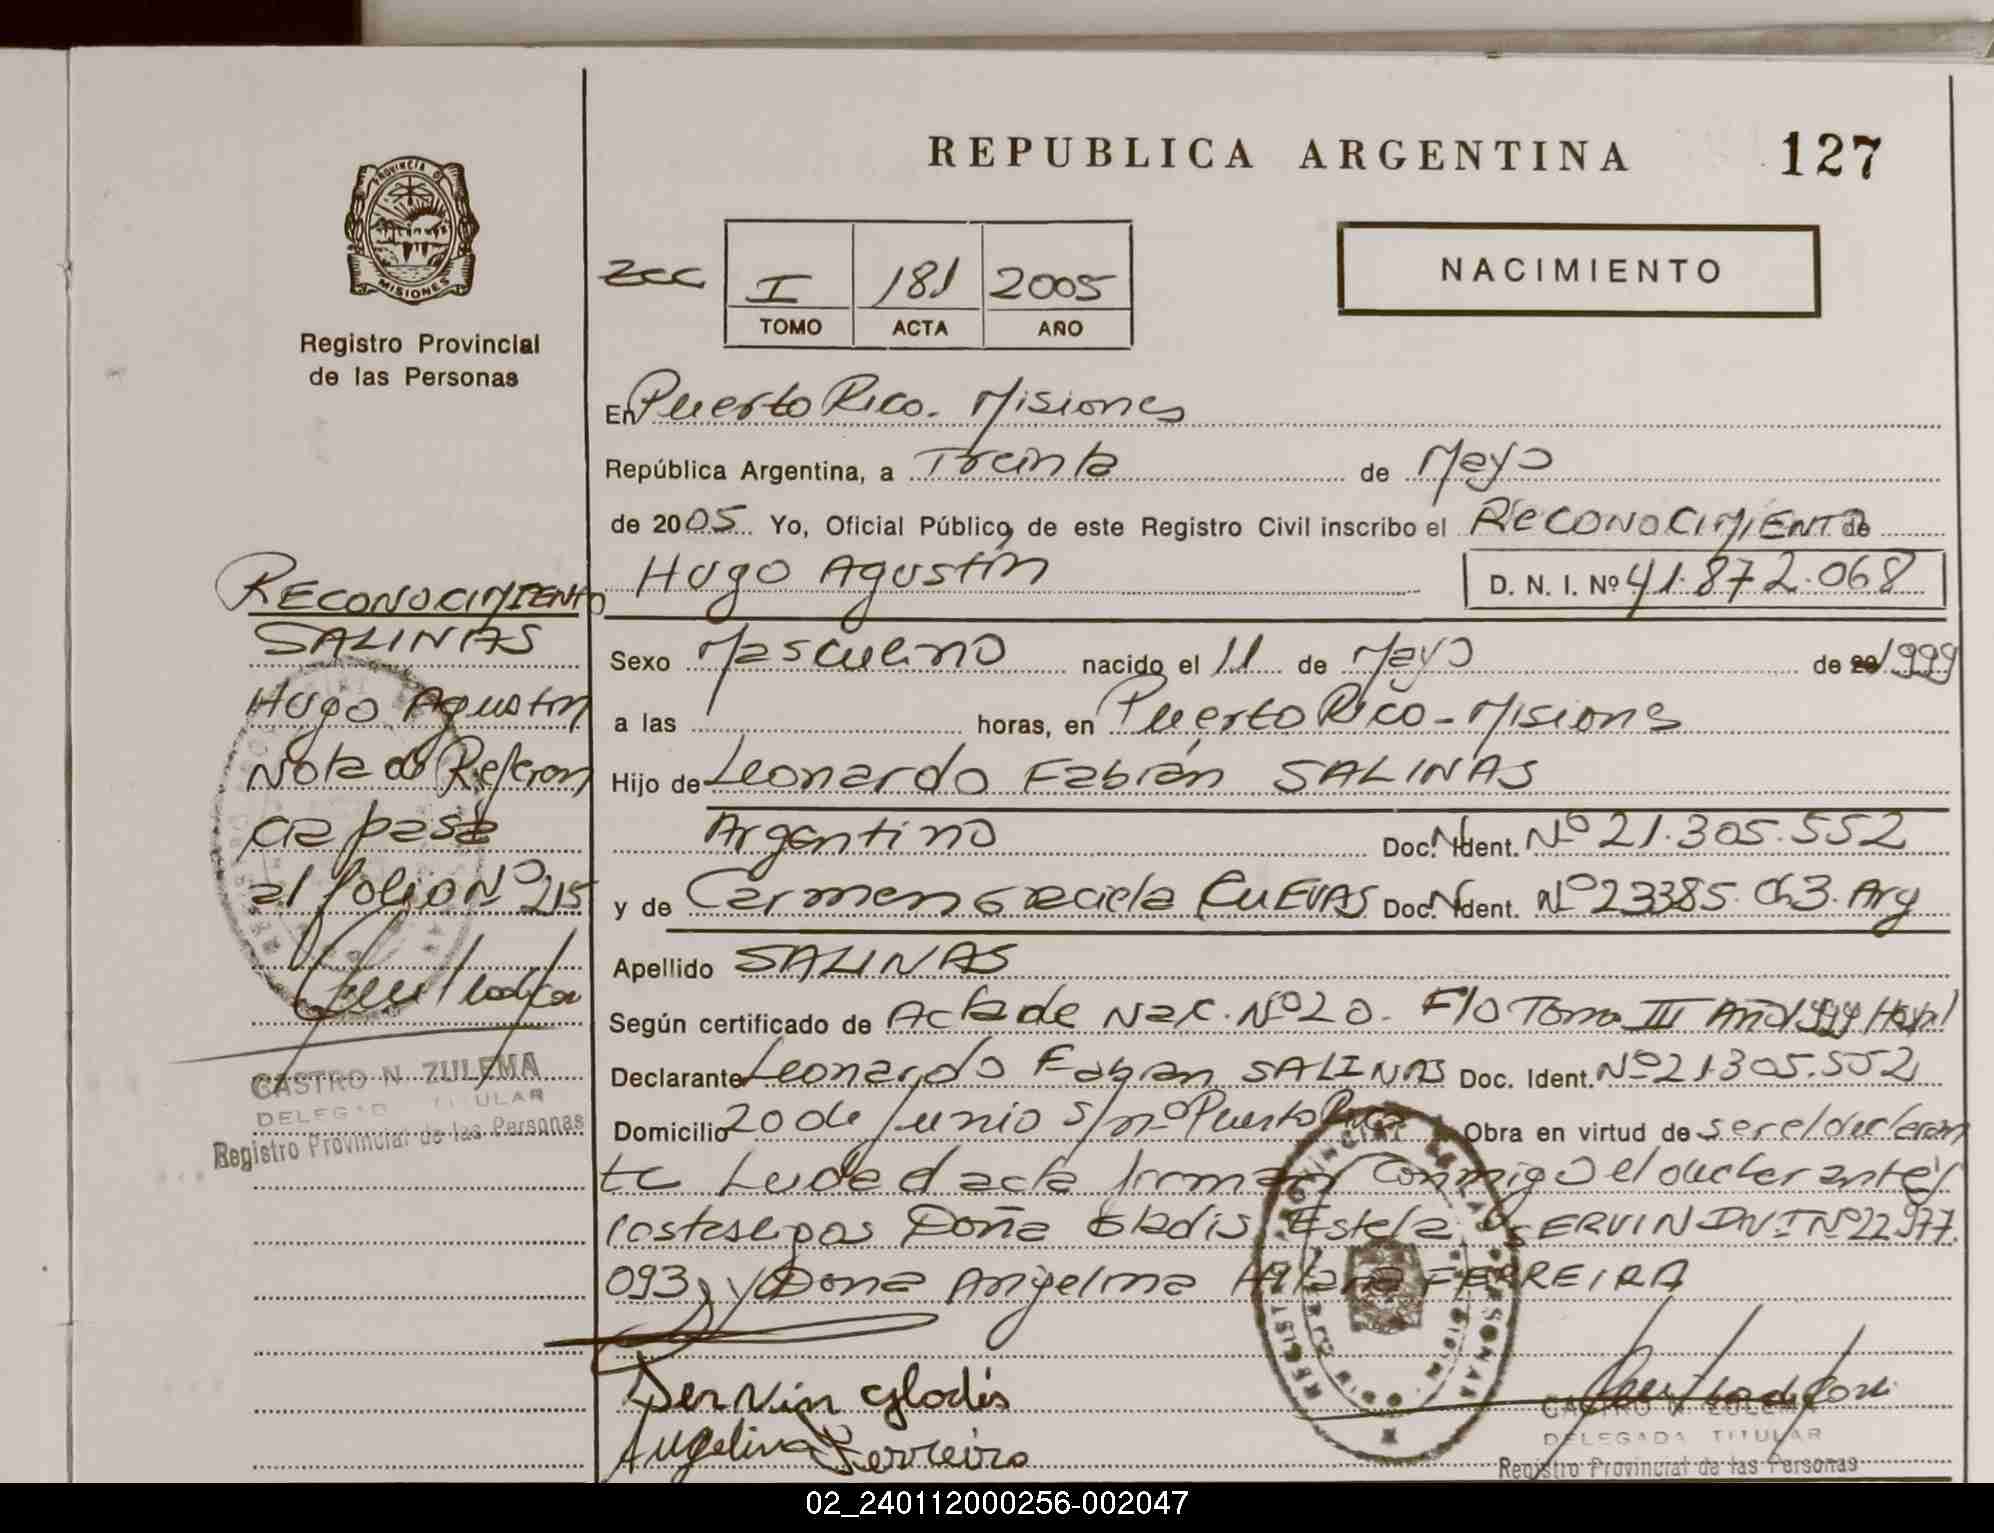 REPUBLICA ARGENTINA
127
PROVINCIA DE
MISIONES
Registro Provincial
de las Personas
I 181 2005
TOMO ACTA AÑO
NACIMIENTO
En Puerto Rico. Misiones
República Argentina, a Treinta de Mayo
de 2005 Yo, Oficial Público, de este Registro Civil inscribo el RECONOCIMIENTO de
Hugo Agustín D. N. I. Nº 41.872.068
Sexo Masculino nacido el 11 de Mayo de 20 1999
a las horas, en Puerto Rico - Misiones
Hijo de Leonardo Fabián SALINAS
Argentino Doc. Ident. Nº 21.305.552
y de Carmen Graciela CUEVAS Doc. Ident. Nº 23385. Arg
Apellido SALINAS
Según certificado de Acta de Nac. Nº 20. Fº Tomo III Año 1999
Declarante Leonardo Fabian SALINAS Doc. Ident. Nº 21305.552
Domicilio 20 de Junio s/nº Puerto Rico Obra en virtud de ser el declaran
te Leida el acta firman conmigo el declarante y
los testigos Doña Gladis Estela SERVIN DNI Nº 22.977.
093, y Doña Angelina FERREIRA
Servin Gladis
Angelina Ferreira
CASTRO N. ZULEMA
DELEGADA TITULAR
Registro Provincial de las Personas
RECONOCIMIENTO
SALINAS
Hugo Agustin
Nota de Referen
cia pasa
al folio Nº 215
CASTRO N. ZULEMA
DELEGADA TITULAR
Registro Provincial de las Personas
02_240112000256-002047